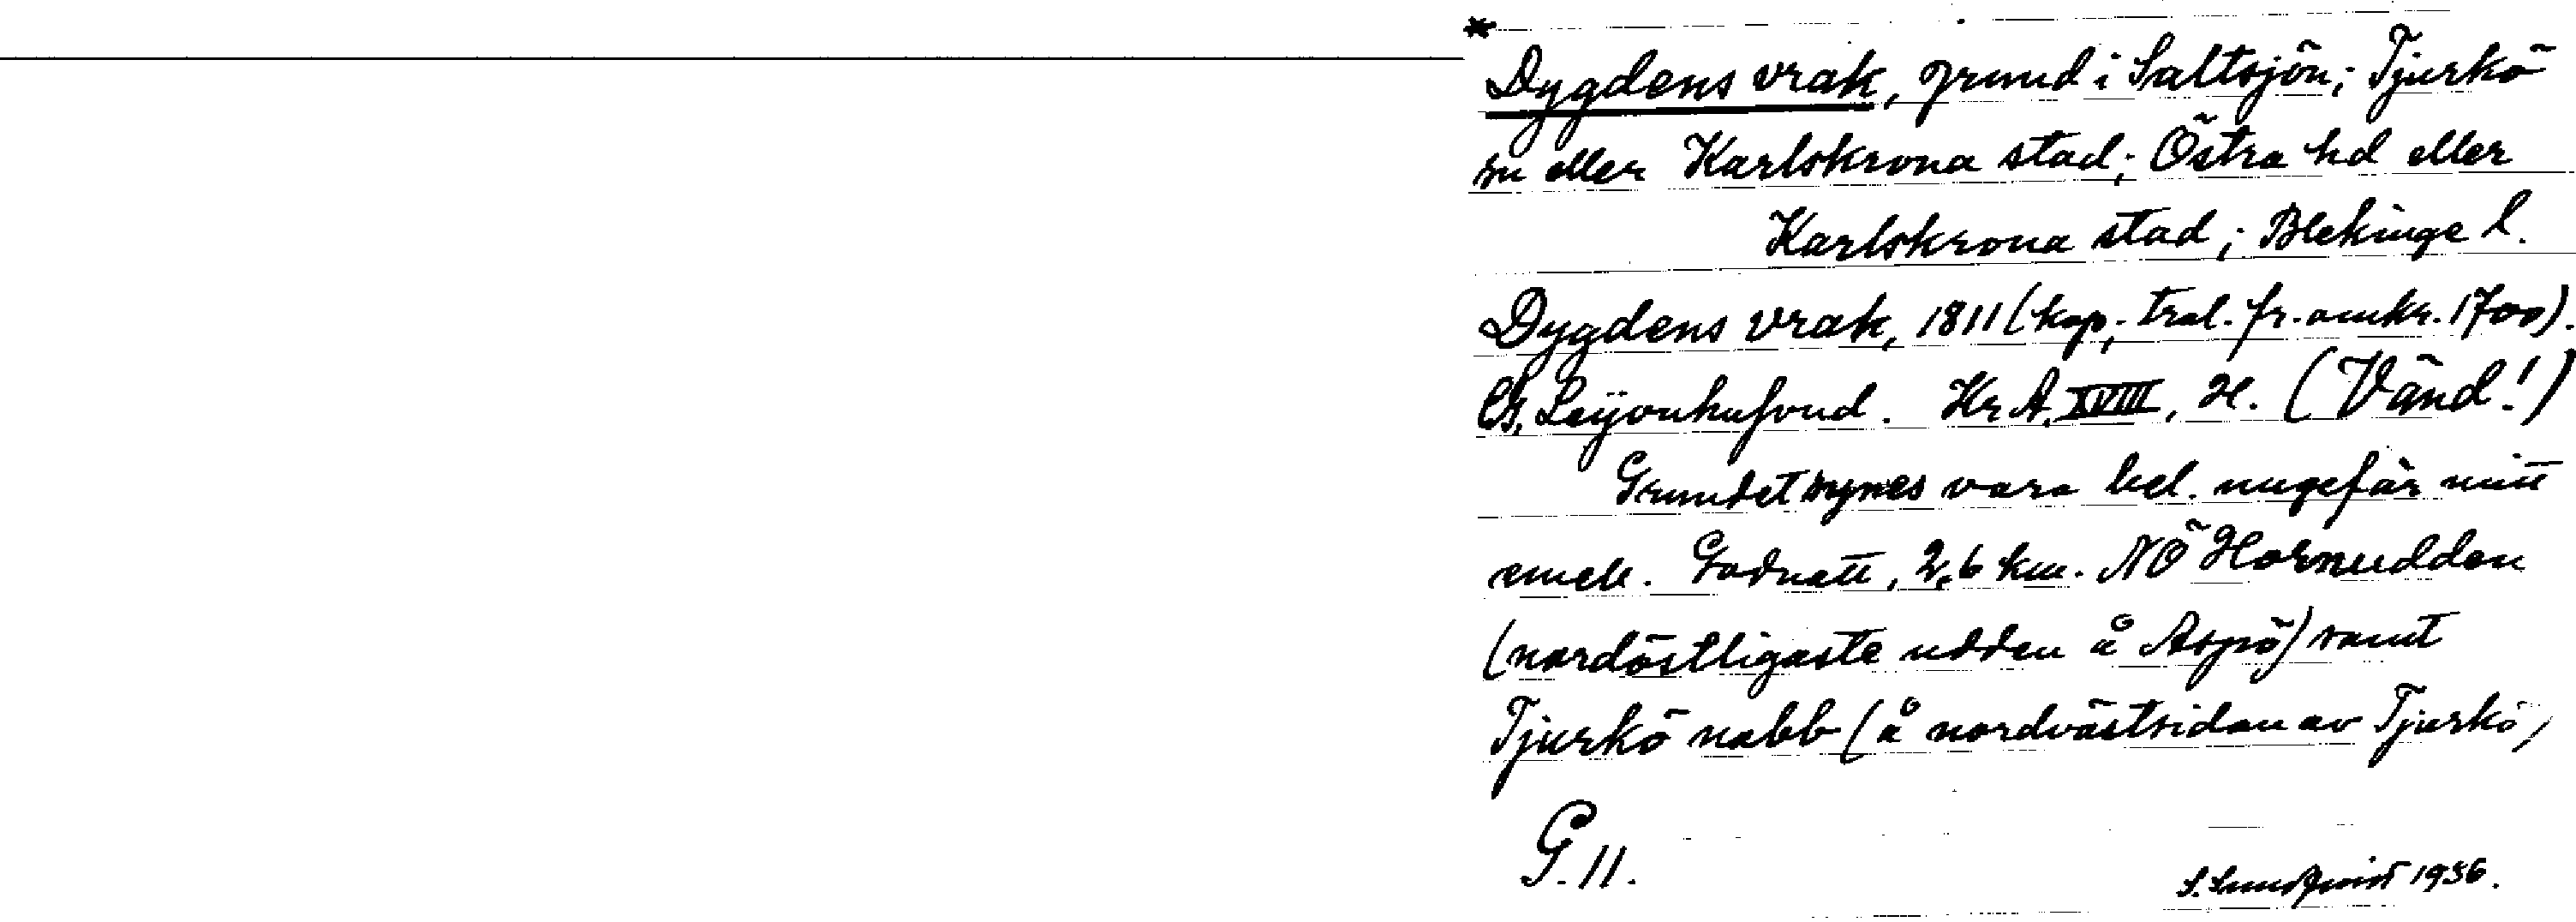 *
Dygdens vrak, grund i Saltsjön; Tjurkö
sn eller Karlskrona stad; Östra hd eller
Karlskrona stad; Blekinge l.
Dygdens vrak, 1811 (kop; tral. fr. omkr. 1700).
G. Leÿonhufvud. KrA. XVIII, H. (Vänd!)
Grundet synes vara bel. ungefär mitt
emell. Godnatt, 2,6 km. NÖ Hornudden
(nordöstligaste udden å Aspö) samt
Tjurkö nabb (å nordvästsidan av Tjurkö)
G. 11.
S. Lundqvist 1936.